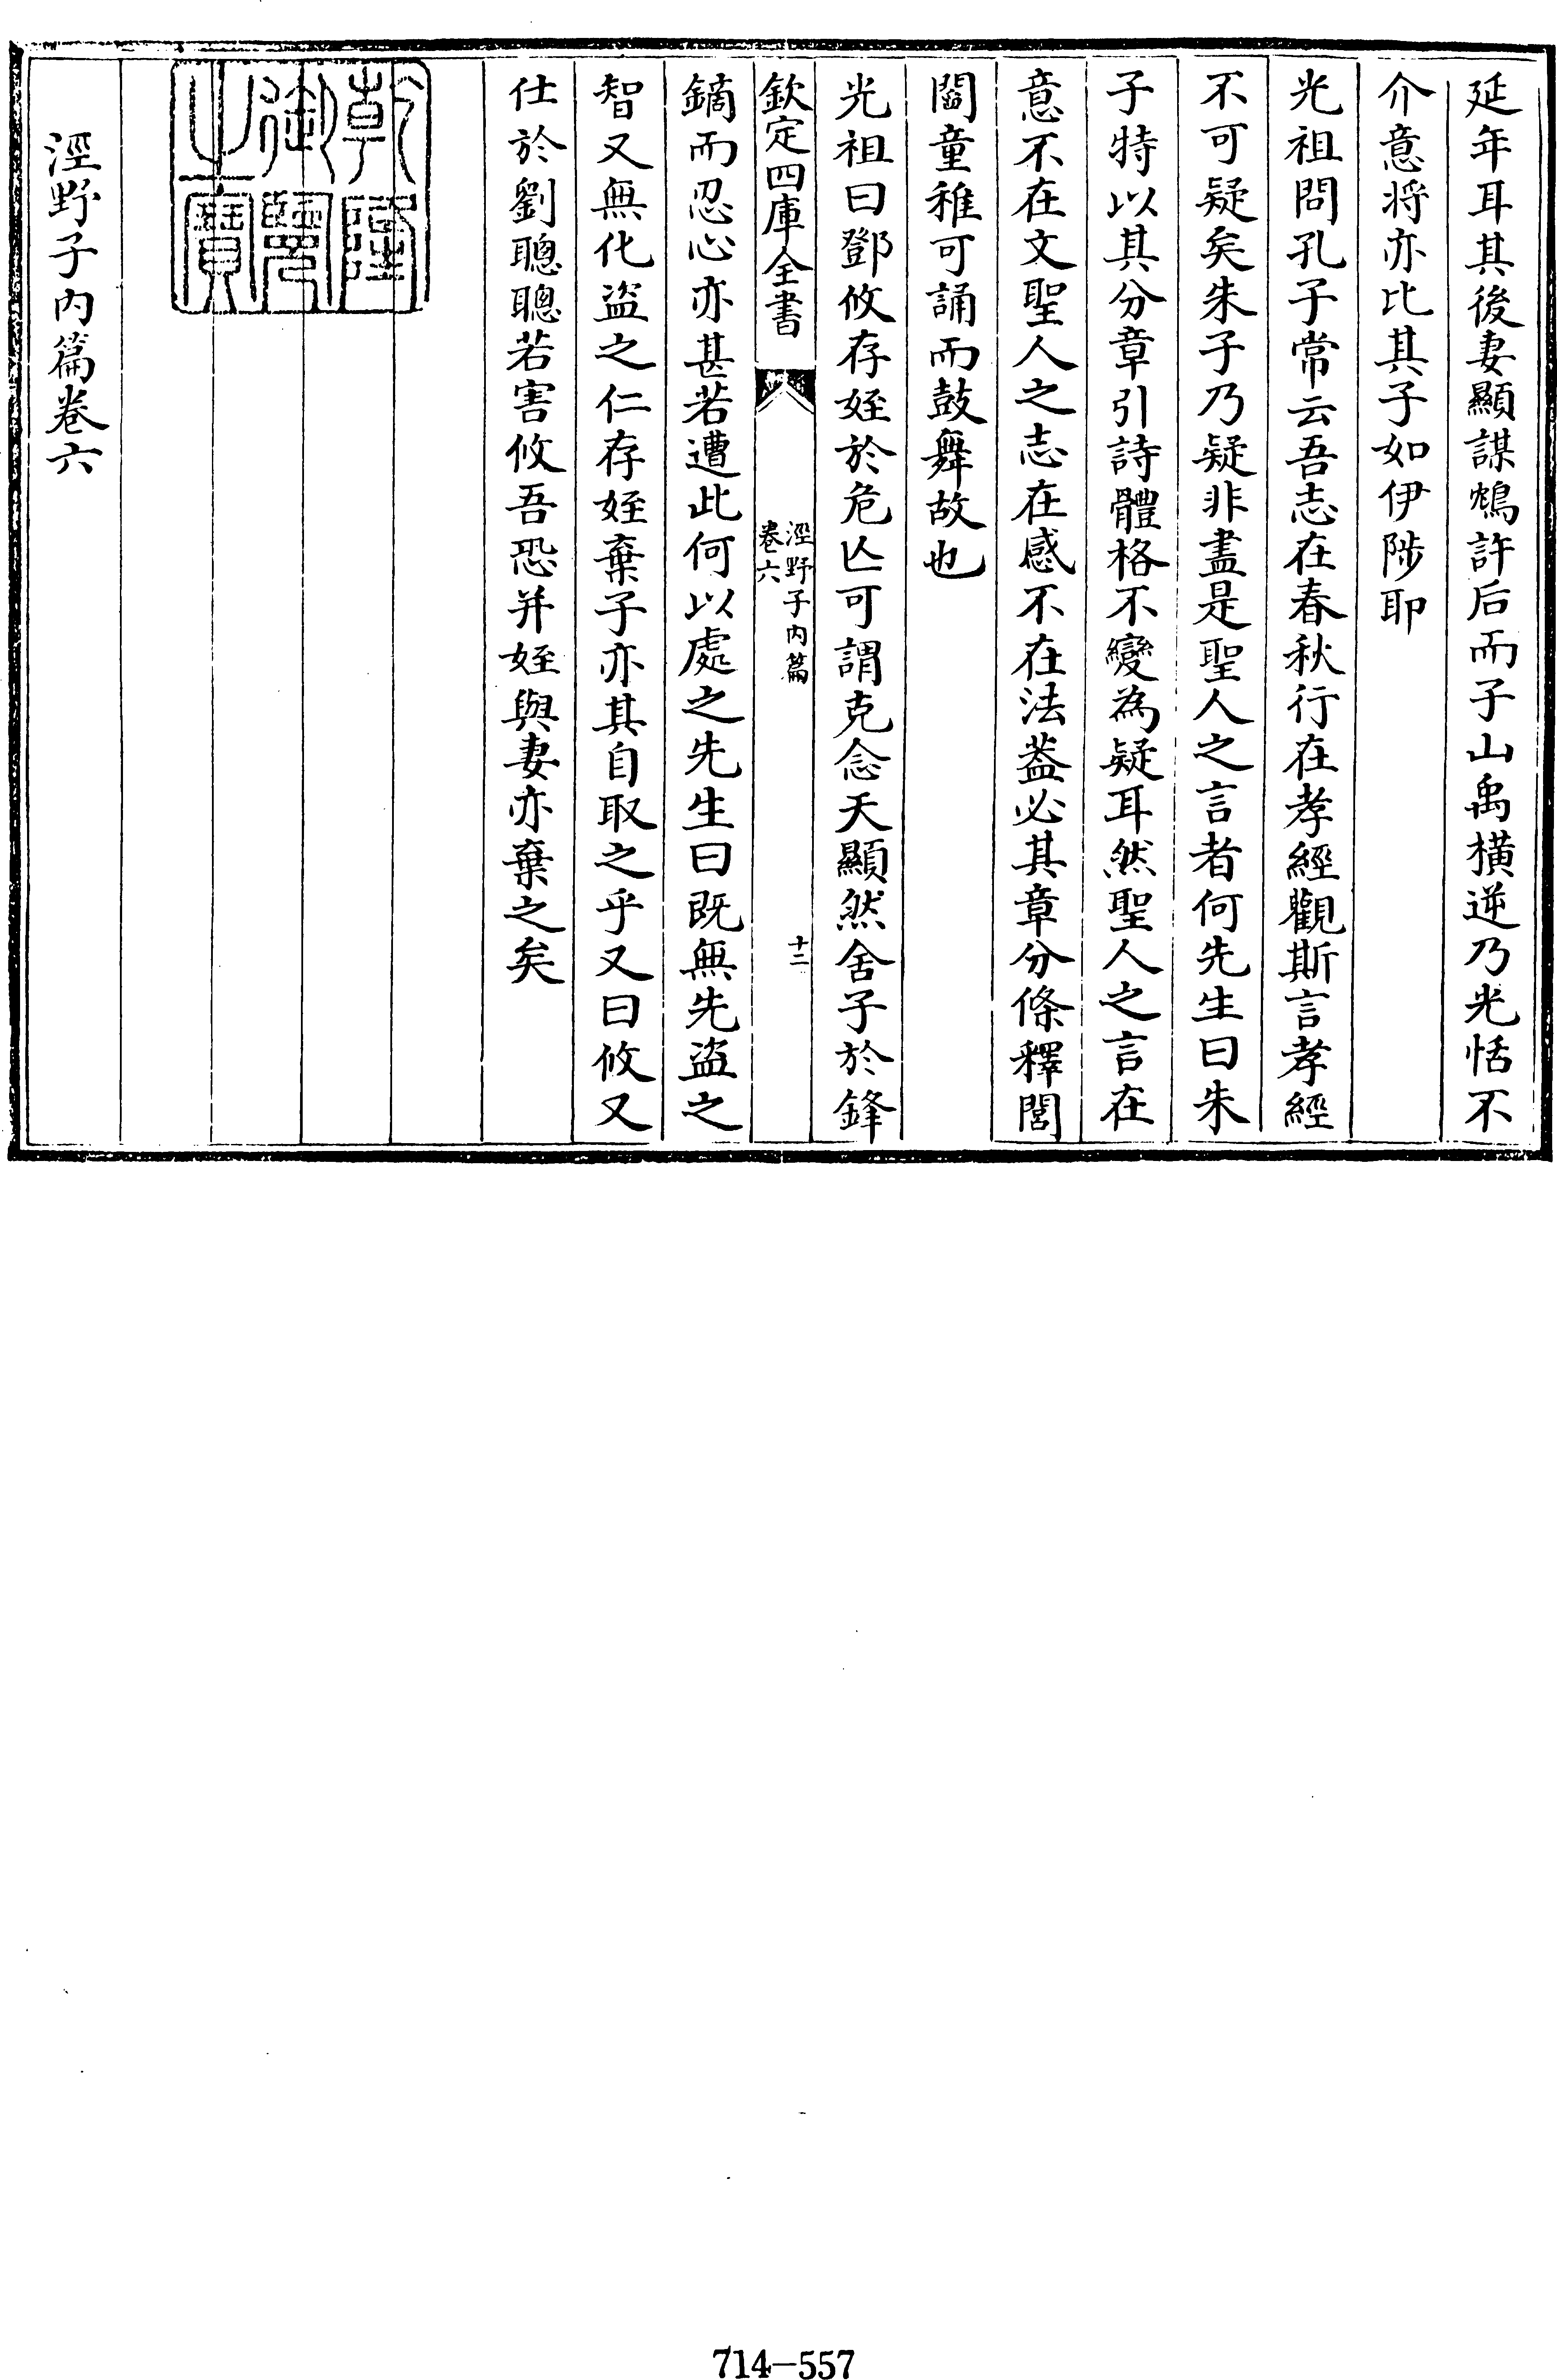 延年耳其後妻顯謀鴆許后而子山禹橫逆乃光恬不
介意將亦比其子如伊陟耶
光祖問孔子常云吾志在春秋行在孝經觀斯言孝經
不可疑矣朱子乃疑非盡是聖人之言者何先生曰朱
子特以其分章引詩體格不變為疑耳然聖人之言在
意不在文聖人之志在感不在法葢必其章分條釋閭
閻童稚可誦而鼓舞故也
光祖曰鄧攸存姪於危亾可謂克念天顯然舍子於鋒
欽定四庫全書
涇野子内篇
卷六
十二
鏑而忍心亦甚若遭此何以處之先生曰既無先盜之
智又無化盜之仁存姪棄子亦其自取之乎又曰攸又
仕於劉聰聰若害攸吾恐并姪與妻亦棄之矣
乾隆
御覽
之寶
涇野子内篇卷六
714-557